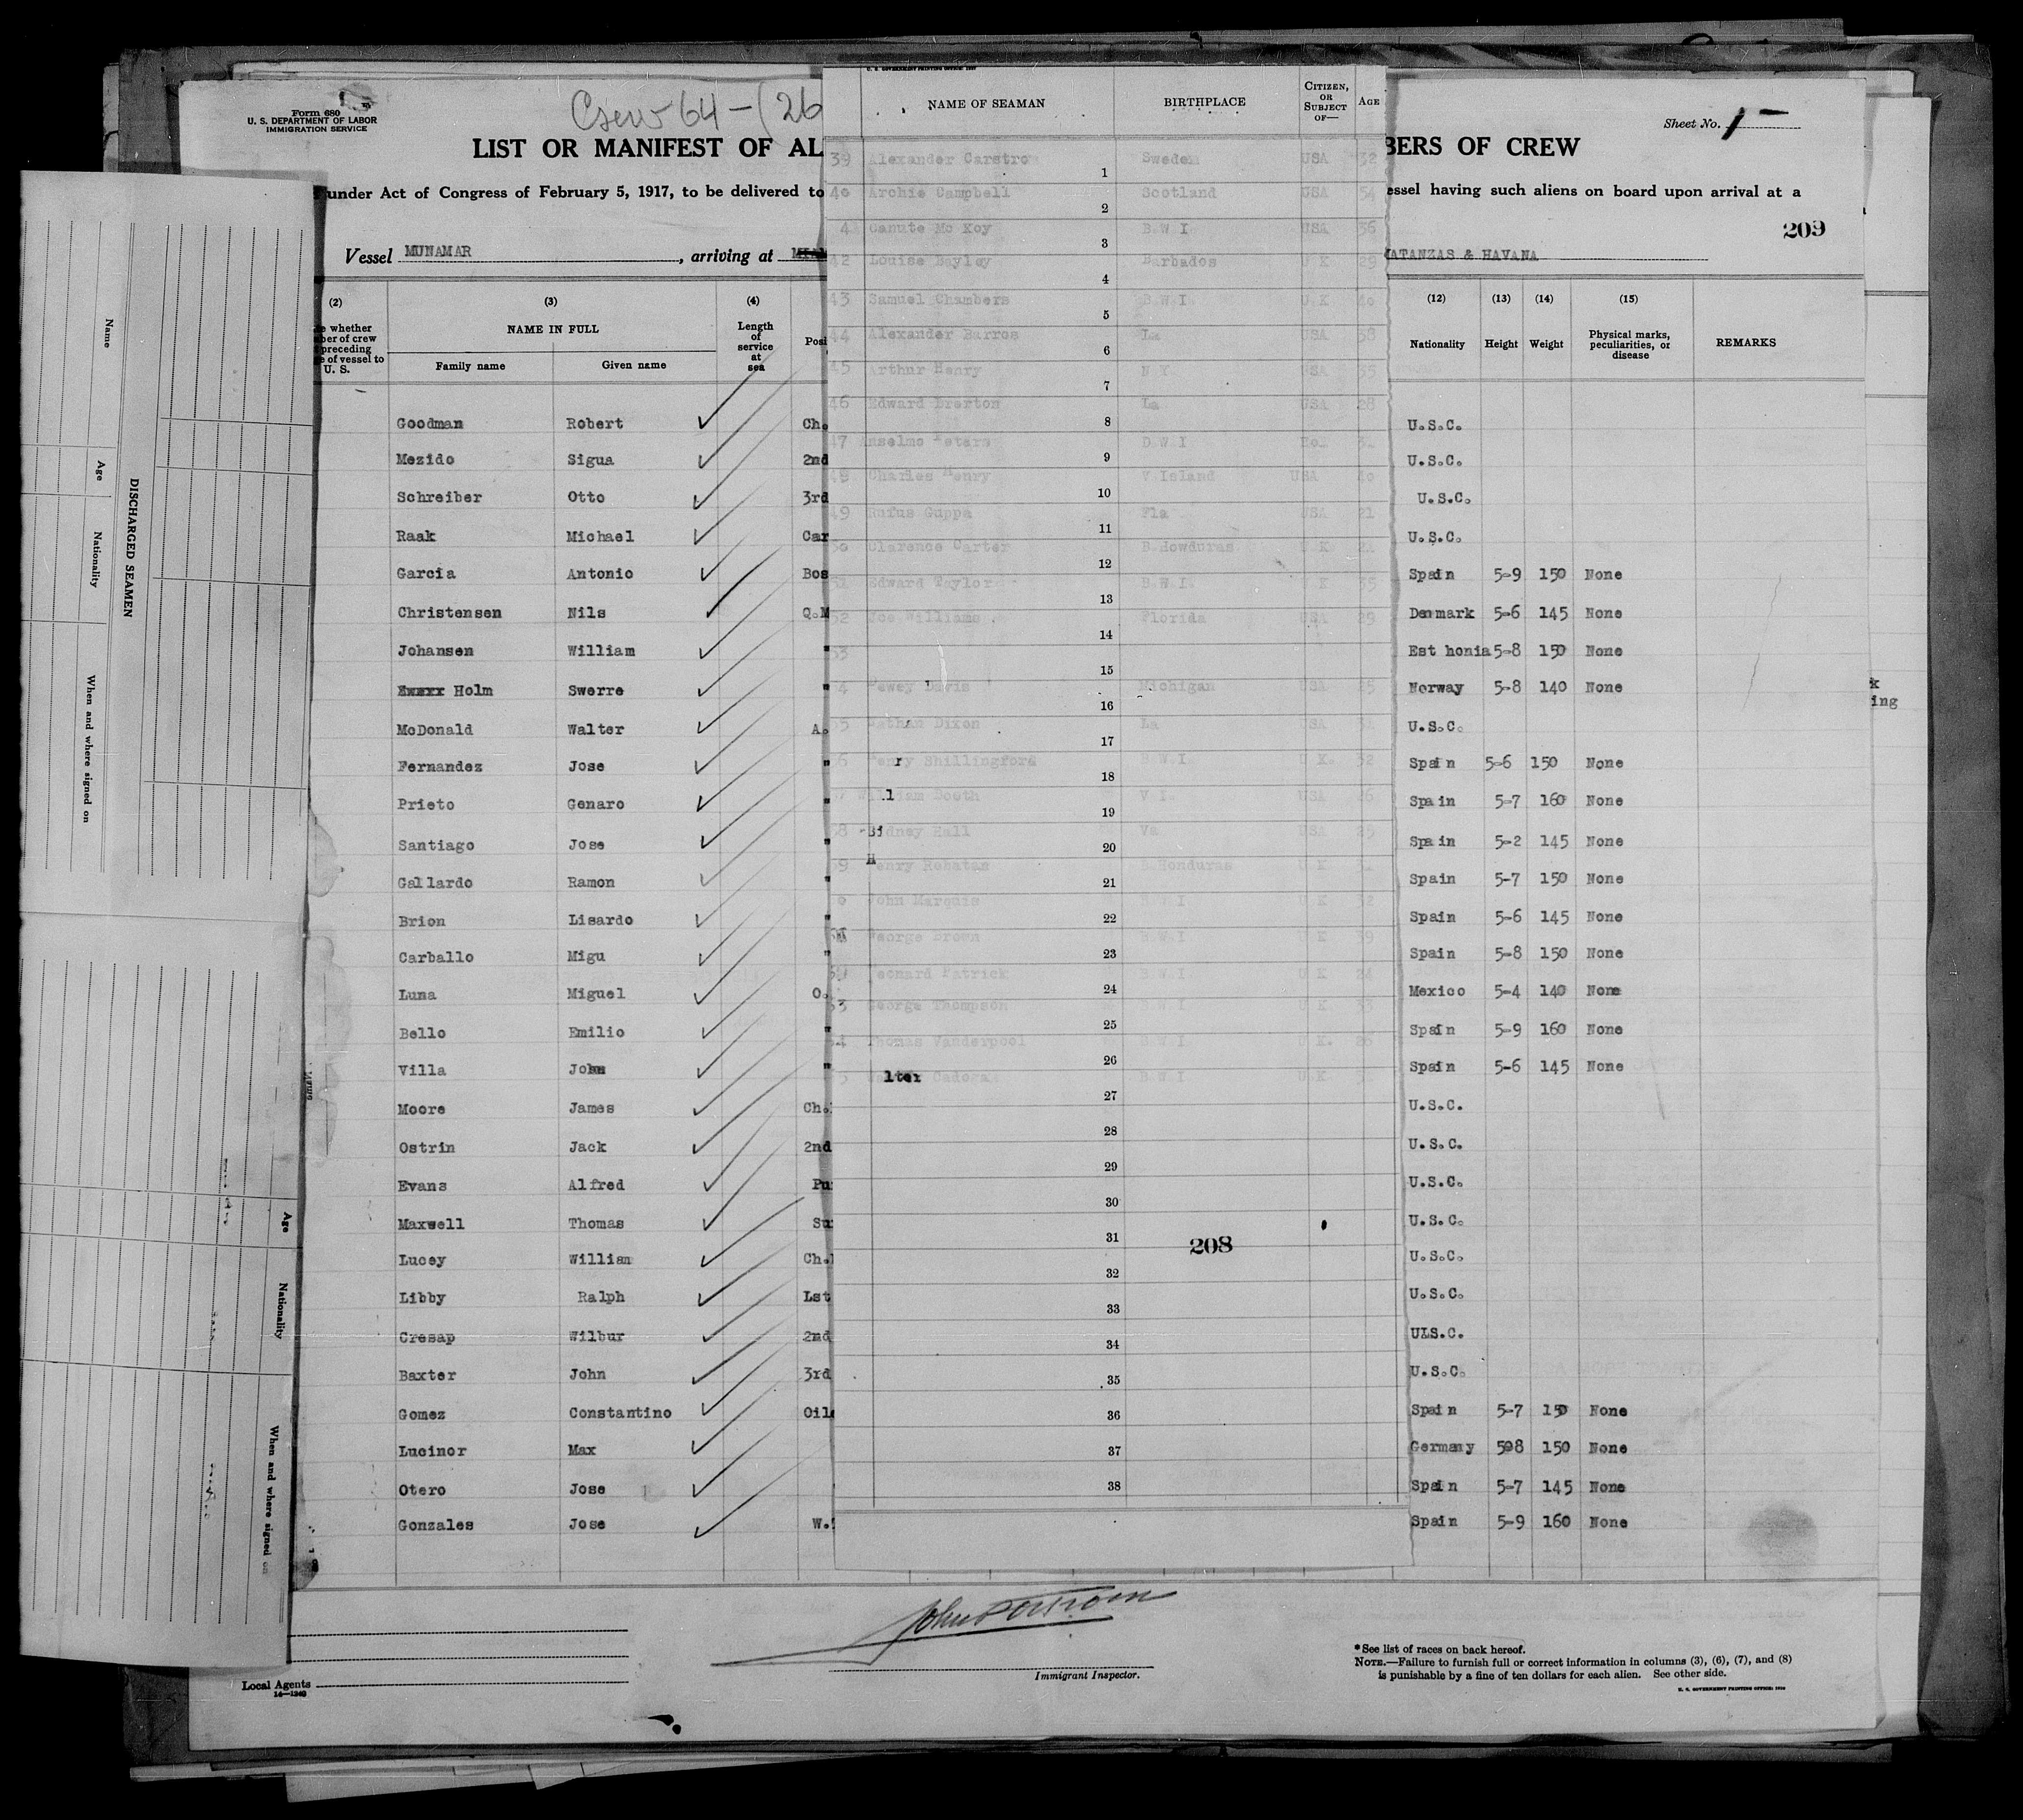 Form 680
U. S. DEPARTMENT OF LABOR
IMMIGRATION SERVICE
Crew 64 - (26
LIST OR MANIFEST OF AL
BERS OF CREW
Sheet No. 1
under Act of Congress of February 5, 1917, to be delivered to
essel having such aliens on board upon arrival at a
209
Vessel MUNAMAR, arriving at
MATANZAS & HAVANA
(2) (3) (4) (12) (13) (14) (15)
whether
ber of crew
preceding
e of vessel to
U. S.
NAME IN FULL
Family name Given name
Length
of
service
at
sea
Posi
Nationality Height Weight
Physical marks,
peculiarities, or
disease
REMARKS
Goodman Robert Ch. U.S.C.
Mezido Sigua 2nd U.S.C.
Schreiber Otto 3rd U.S.C.
Raak Michael Car U.S.C.
Garcia Antonio Bos Spain 5-9 150 None
Christensen Nils Q.M Denmark 5-6 145 None
Johansen William " Esthonia 5-8 150 None
Holm Swerre " Norway 5-8 140 None
McDonald Walter A. U.S.C.
Fernandez Jose " Spain 5-6 150 None
Prieto Genaro " Spain 5-7 160 None
Santiago Jose " Spain 5-2 145 None
Gallardo Ramon " Spain 5-7 150 None
Brion Lisardo " Spain 5-6 145 None
Carballo Migu " Spain 5-8 150 None
Luna Miguel O. Mexico 5-4 140 None
Bello Emilio " Spain 5-9 160 None
Villa John " Spain 5-6 145 None
Moore James Ch. U.S.C.
Ostrin Jack 2nd U.S.C.
Evans Alfred Pu U.S.C.
Maxwell Thomas Su U.S.C.
Lucey William Ch. U.S.C.
Libby Ralph Lst U.S.C.
Cresap Wilbur 2nd U.S.C.
Baxter John 3rd U.S.C.
Gomez Constantino Oil Spain 5-7 150 None
Lucinor Max Germany 508 150 None
Otero Jose Spain 5-7 145 None
Gonzales Jose W. Spain 5-9 160 None
U. S. GOVERNMENT PRINTING OFFICE
NAME OF SEAMAN BIRTHPLACE CITIZEN, OR SUBJECT OF— AGE
39 Alexander Carstro Sweden USA 32
1
40 Archie Campbell Scotland USA 54
2
Canute Mc Koy B.W I USA 36
3
42 Louise Bayley Barbados U K 29
4
43 Samuel Chambers B.W.I U.K 40
5
44 Alexander Barros La USA 38
6
45 Arthur Henry N Y. USA 35
7
46 Edward Brerton La USA 28
8
47 Anselmo Peters D W I
9
Charles Henry V Island USA 40
10
49 Rufus Guppa Fla USA 21
11
Clarence Carter B.Howduras U K
12
Edward Taylor B.W.I. 35
13
52 Joe Williams Florida USA 29
14
53
15
Dewey Davis Michigan USA
16
Nathan Dixon La USA
17
Henry Shillingford B.W.I. U K. 32
18
V I. USA 26
19
Sidney Hall Va USA 25
20
Henry Honduras U K
21
John Marquis B.W I U K 32
22
George Brown B.W.I U K 39
23
Leonard Patrick B.W.I. U K 24
24
George Thompson B.W.I. U K 33
25
Thomas Vanderpool B.W I. U K. 26
26
lter B.W I U.K
27
28
29
30
31
208
32
33
34
35
36
37
38
Name
Age
Nationality
When and where signed on
DISCHARGED SEAMEN
Age
Nationality
When and where signed on
ing
Local Agents
14—1240
Immigrant Inspector.
*See list of races on back hereof.
NOTE.—Failure to furnish full or correct information in columns (3), (6), (7), and (8)
is punishable by a fine of ten dollars for each alien. See other side.
U. S. GOVERNMENT PRINTING OFFICE